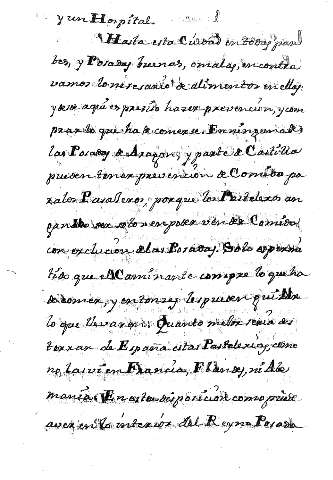 y un Hospital.
Hasta esta Ciudad en todas par
tes, y Posadas buenas, o malas, encontra
vamos lo nesesario de alimentos en ellas,
y desde aquí es presiso hazer prevencion, y com
prar lo que ha de comerse. En ninguna de
las Posadas de Aragon, y parte de Castilla
pueden tener prevención de Comida pa
ra los Pasaxeros, porque los Pasteleros
solo en poder vender Comida
con exclucion de las Posadas. Solo
que el Caminante compre lo que ha
de comer, y entonzes les pueden
lo que llevaren. Quanto mejor seria des
terrar de España estas Pastelerias, como
no las vi en Francia, Flandes, ni Ale
mania. En esta disposicion como puede
aver en lo interior del Reyno Posada